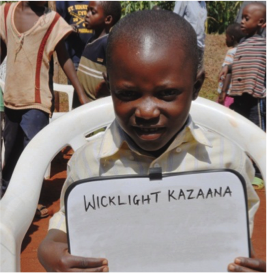 WICKLIGHT KAZAANA